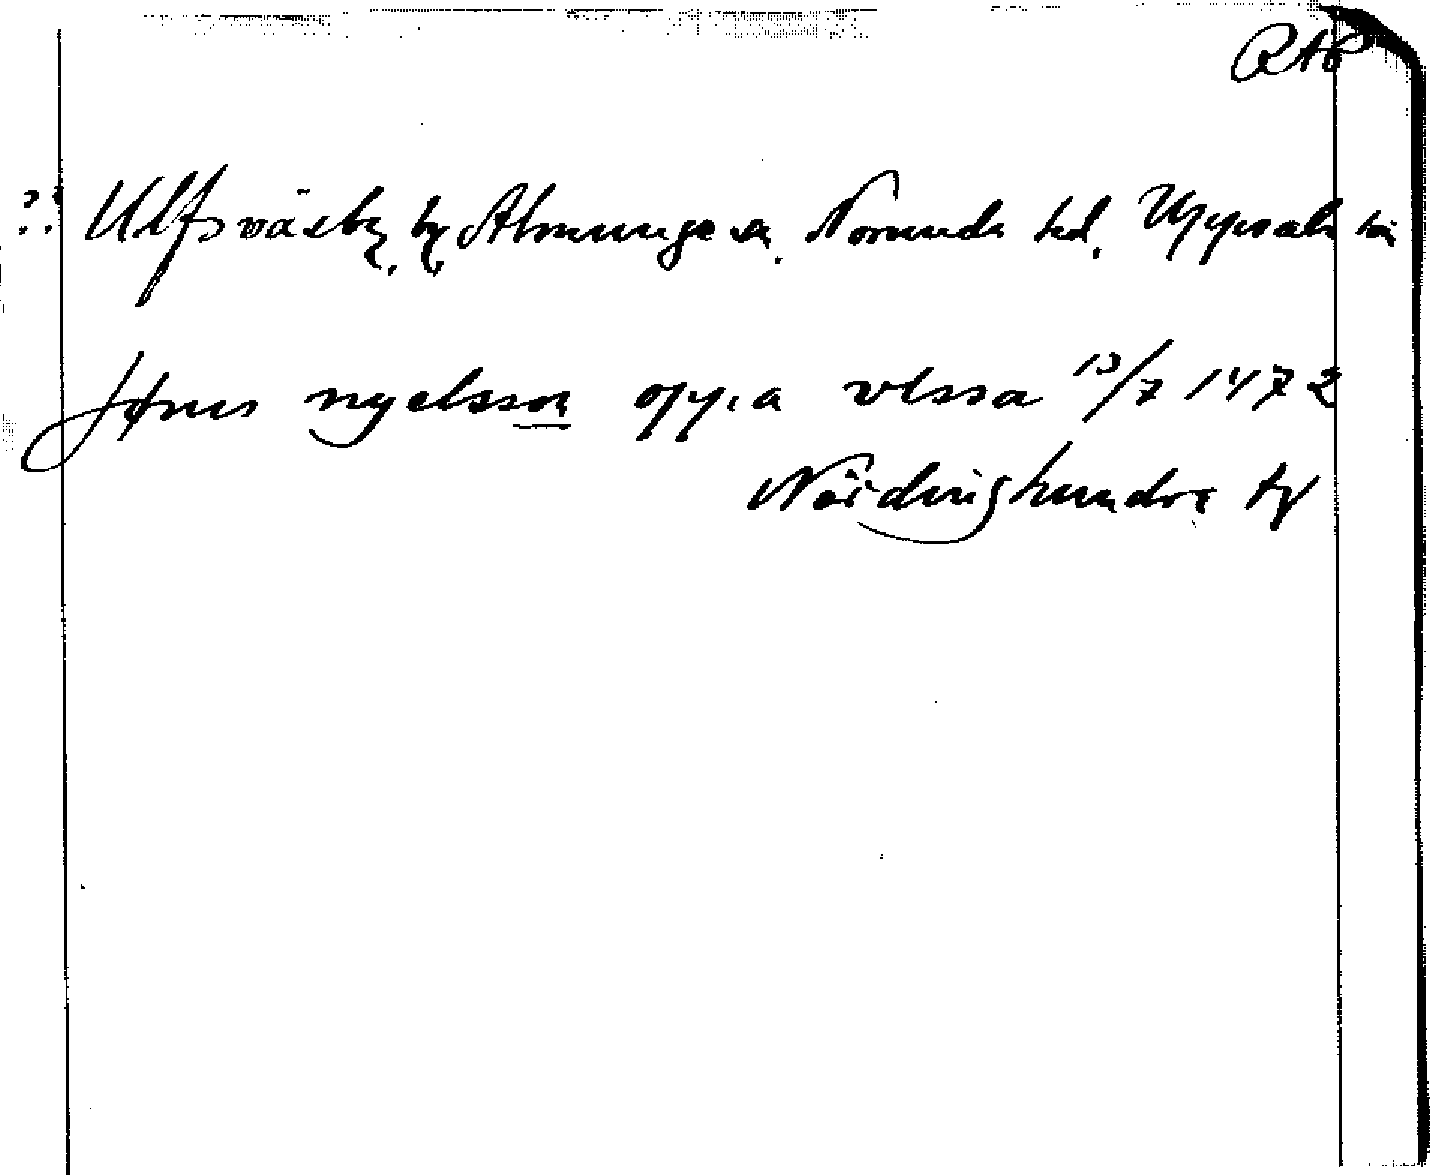 RAP
?? Ulfsväsby, by, Almunge sn. Norunda hd. Uppsala län
Jønis nyelsson oppa vlssa 13/7 1472
Närdinghundra ty